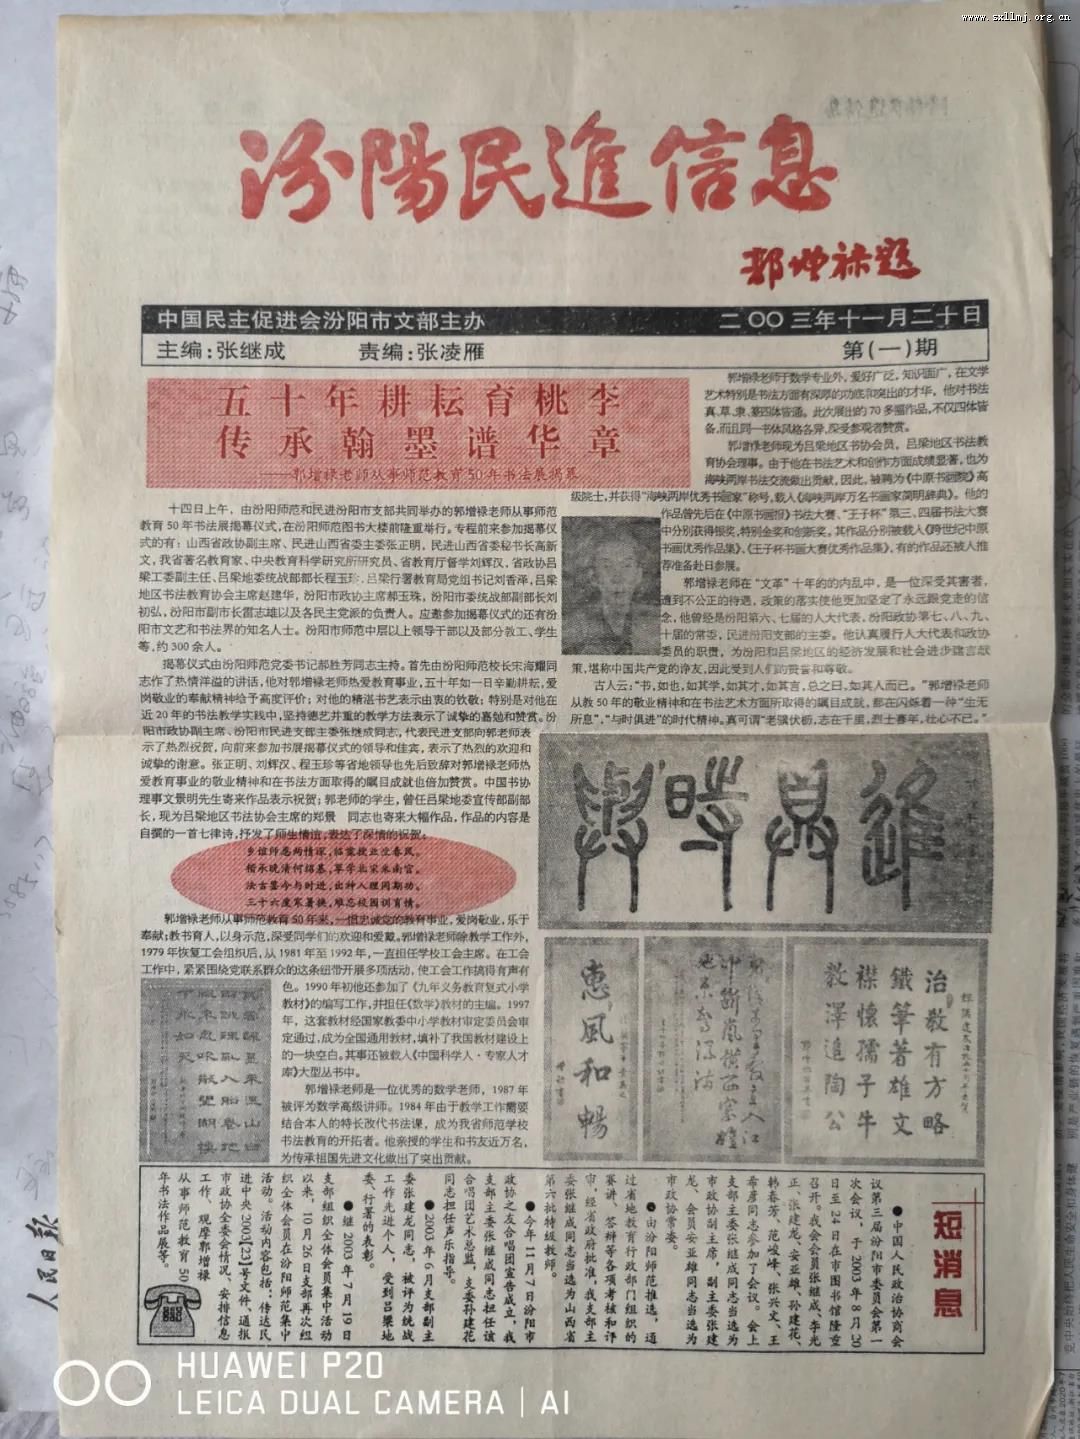 www.sxllmj.org.cn
汾陽民進信息
郭增禄题
中国民主促进会汾阳市支部主办
二〇〇三年十一月二十日
主编:张继成
责编:张凌雁
第(一)期
五十年耕耘育桃李
传承翰墨谱华章
——郭增禄老师从事师范教育50年书法展揭幕
十四日上午，由汾阳师范和民进汾阳市支部共同举办的郭增禄老师从事师范
教育50年书法展揭幕仪式，在汾阳师范图书大楼前隆重举行。专程前来参加揭幕仪
式的有：山西省政协副主席、民进山西省委主委张正明，民进山西省委秘书长高新
文，我省著名教育家、中央教育科学研究所研究员、省教育厅督学刘辉汉，省政协吕
梁工委副主任、吕梁地委统战部部长程玉珍，吕梁行署教育局党组书记刘香泽，吕梁
地区书法教育协会主席赵建华，汾阳市政协主席郝玉珠，汾阳市委统战部副部长刘
初弘，汾阳市副市长雷志雄以及各民主党派的负责人。应邀参加揭幕仪式的还有汾
阳市文艺和书法界的知名人士。汾阳市师范中层以上领导干部以及部分教工、学生
等，约300余人。
揭幕仪式由汾阳师范党委书记郝胜芳同志主持。首先由汾阳师范校长宋海耀同
志作了热情洋溢的讲话，他对郭增禄老师热爱教育事业，五十年如一日辛勤耕耘，爱
岗敬业的奉献精神给予高度评价；对他的精湛书艺表示由衷的钦敬；特别是对他在
近20年的书法教学实践中，坚持德艺并重的教学方法表示了诚挚的嘉勉和赞赏。汾
阳市政协副主席、汾阳市民进支部主委张继成同志，代表民进支部向郭老师表
示了热烈祝贺，向前来参加书展揭幕仪式的领导和佳宾，表示了热烈的欢迎和
诚挚的谢意。张正明、刘辉汉、程玉珍等省地领导也先后致辞对郭增禄老师热
爱教育事业的敬业精神和在书法方面取得的瞩目成就也倍加赞赏。中国书协
理事文景明先生寄来作品表示祝贺；郭老师的学生，曾任吕梁地委宣传部副部
长，现为吕梁地区书法协会主席的郑景 同志也寄来大幅作品，作品的内容是
自撰的一首七律诗，抒发了师生情谊，表达了深情的祝贺：
乡谊师恩两情深，临案授业坐春风。
楷承晚清何绍基，草学北宋米南宫。
法古鉴今与时进，出神入理同期功。
三十六度寒暑换，难忘校园训育情。
郭增禄老师从事师范教育50年来，一惯忠诚党的教育事业，爱岗敬业，乐于
奉献；教书育人，以身示范，深受同学们的欢迎和爱戴。郭增禄老师除教学工作外，
1979年恢复工会组织后，从1981年至1992年，一直担任学校工会主席。在工会
工作中，紧紧围绕党联系群众的这条纽带开展多项活动，使工会工作搞得有声有
色。1990年初他还参加了《九年义务教育复式小学
教材》的编写工作，并担任《数学》教材的主编。1997
年，这套教材经国家教委中小学教材审定委员会审
定通过，成为全国通用教材，填补了我国教材建设上
的一块空白。其事还被载人《中国科学人·专家人才
库》大型丛书中。
郭增禄老师是一位优秀的数学老师，1987年
被评为数学高级讲师。1984年由于教学工作需要
结合本人的特长改代书法课，成为我省师范学校
书法教育的开拓者。他亲授的学生和书友近万名，
为传承祖国先进文化做出了突出贡献。
郭增禄老师于数学专业外，爱好广泛，知识面广，在文学
艺术特别是书法方面有深厚的功底和突出的才华。他对书法
真、草、隶、篆四体皆通。此次展出的70多幅作品，不仅四体皆
备，而且同一书体风格各异，深受参观者赞赏。
郭增禄老师现为吕梁地区书协会员，吕梁地区书法教
育协会理事。由于他在书法艺术和创作方面成绩显著，也为
海峡两岸书法交流做出贡献，因此，被聘为《中原书画院》高
级院士，并获得“海峡两岸优秀书画家”称号，载人《海峡两岸万名书画家简明辞典》。他的
作品曾先后在《中原书画报》书法大赛、“王子杯”第三、四届书法大赛
中分别获得银奖，特别金奖和创新奖。其作品分别被载人《跨世纪中原
书画优秀作品集》、《王子杯书画大赛优秀作品集》，有的作品还被人推
荐准备赴日参展。
郭增禄老师在“文革”十年的的内乱中，是一位深受其害者，
遭到不公正的待遇，政策的落实使他更加坚定了永远跟党走的信
念，他曾经是汾阳第六、七届的人大代表，汾阳政协第七、八、九、
十届的常委，民进汾阳支部的主委。他认真履行人大代表和政协
委员的职责，为汾阳和吕梁地区的经济发展和社会进步建言献
策，堪称中国共产党的诤友，因此受到人们的赞誉和尊敬。
古人云：“书，如也，如其学，如其才，如其言，总之曰，如其人而已。”郭增禄老师
从教50年的敬业精神和在书法艺术方面所取得的瞩目成就，都在闪烁着一种“生无
所息”，“与时俱进”的时代精神。真可谓“老骥伏枥，志在千里，烈士暮年，壮心不已。”
與時具進
惠風和暢
治教有方略
鐵筆著雄文
襟懷孺子牛
教澤追陶公
短消息
●中国人民政治协商会
议第三届汾阳市委员会第一
次会议，于2003年8月20
日至24日在市图书馆隆重
召开。我会会员张继成、李光
正、张建龙、安亚雄、孙建花、
韩春芳、范峻峰、张兴文、王
希彦同志参加了会议。会上
支部主委张继成同志当选为
市政协副主席，副主委张建
龙、会员安亚雄同志当选为
市政协常委。
●由汾阳师范推选，通
过省地教育行政部门组织的
赛讲、答辩等各项考核和评
审，经省政府批准，我支部主
委张继成同志当选为山西省
第六批特级教师。
●今年11月7日汾阳市
政协之友合唱团宣告成立，我
支部主委张继成同志担任该
合唱团艺术总监，支委孙建花
同志担任声乐指导。
●2003年6月支部副主
委张建龙同志，被评为统战
工作先进个人，受到吕梁地
委、行署的表彰。
●继2003年7月19日
支部组织全体会员集中活动
以来，10月26日支部再次组
织全体会员在汾阳师范集中
活动。活动内容包括：传达民
进中央2003[23]号文件、通报
市政协全委会情况、安排信息
工作、观摩郭增禄
从事师范教育50
年书法作品展等。
人民日报
HUAWEI P20
LEICA DUAL CAMERA | AI